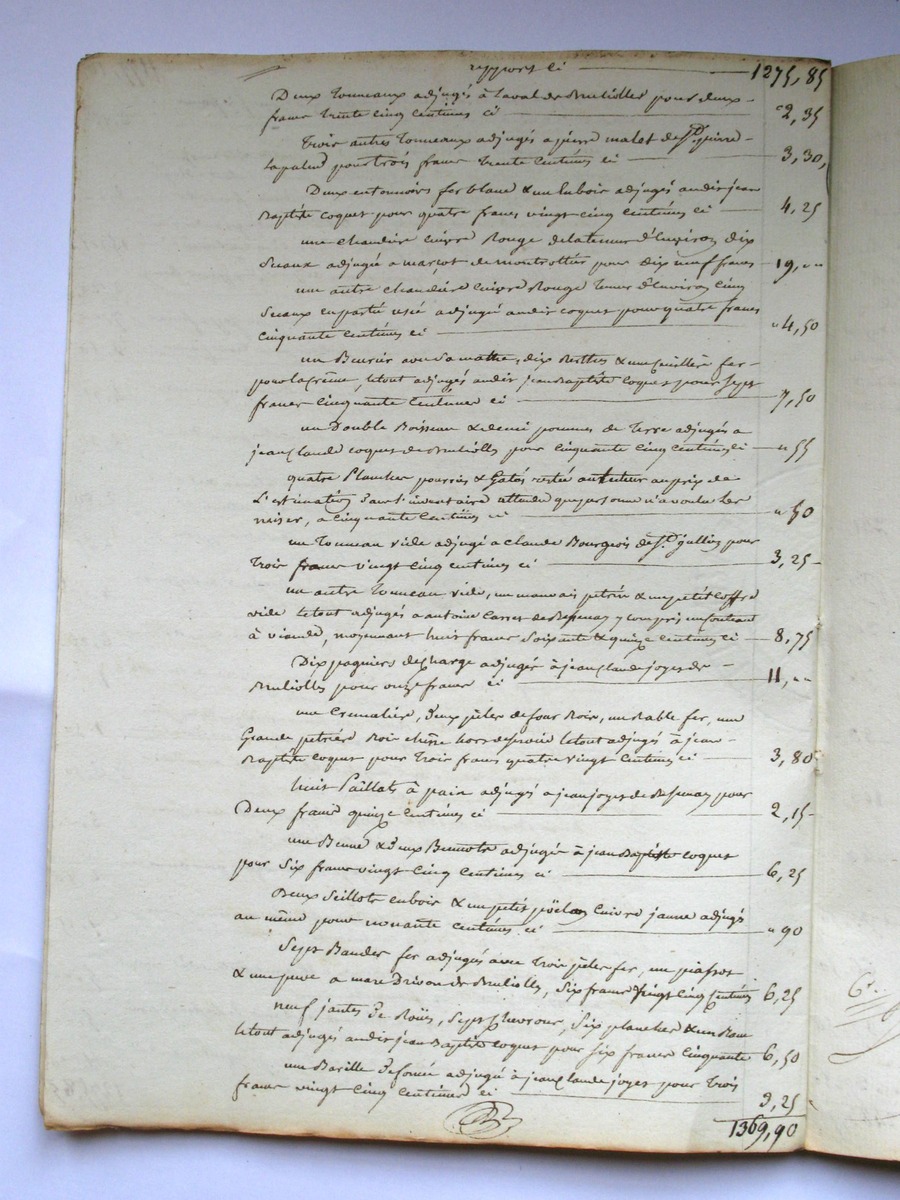 rapport ci 1275,85
Deux tonneaux adjugés à Laval de Brulioles pour deux
francs trente cinq centimes ci 2,35
Trois autres tonneaux adjugés a pierre malet de St. pierre
lapalud pour trois francs trente centimes ci 3,30
Deux entonnoirs fer blanc & un en bois adjugés audit jean
Baptiste coquet pour quatre francs vingt cinq centimes ci 4,25
une chaudière cuivre Rouge de la teneur d'environ dix
Seaux adjugée a de montrottier pour dix neuf francs 19,""
une autre chaudière cuivre Rouge teneur d'environ cinq
Seaux en partie usée adjugée audit coquet pour quatre francs
cinquante centimes ci "4,50
un Beurier avec Sa dix & une cuillère fer
pour la crême, letout adjugés audit jean Baptiste coquet pour Sept
francs cinquante centimes ci 7,50
un Double Boisseau & demi pommes de Terre adjugés a
jean Claude coquet de Brulioles pour cinquante cinq centimes ci "55
quatre Planches pourries & Gatés restée au tuteur au prix de
L'estimation dans l'inventaire attendu que personne n'a voulu les
miser, a cinquante centimes ci "50
un Tonneau vide adjugé a claude Bourgeois de St. jullien pour
Trois francs vingt cinq centimes ci 3,25
un autre Tonneau vide, un mauvais petrin & un petit coffre
vide letout adjugés a antoine de y compris un couteau
à viande, moyennant huit francs Soixante & quinze centimes ci 8,75
Dix paquiers de charge adjugés à jean claude joyet de
Brulioles pour onze francs ci 11,""
une Cremalière, deux pèles de four Bois, un Rable fer, une
Grande petrière Bois chêne hors de letout adjugés à jean
Baptiste coquet pour Trois francs quatre vingt centimes ci 3,80
huit Paillats à pain adjugés a jean joyet de pour
Deux francs quinze centimes ci 2,15
une Benne & deux Bennots adjugés à jean Baptiste coquet
pour Six francs vingt cinq centimes ci 6,25
Deux Seillots en bois & un petit poëlon Cuivre jaune adjugés
au même pour nonante centimes ci "90
Sept Bandes fer adjugés avec Trois pèles fer, un piassot
& une a marc Drivon de Brulioles, Six francs vingt cinq centimes 6,25
neuf jantes de Roües, Sept chevrons, Six planches & un
letout adjugés audit jean Baptiste coquet pour six francs cinquante 6,50
une Barille defoncée adjugée à jean claude joyet pour Trois
francs vingt cinq centimes ci 3,25
1369,90